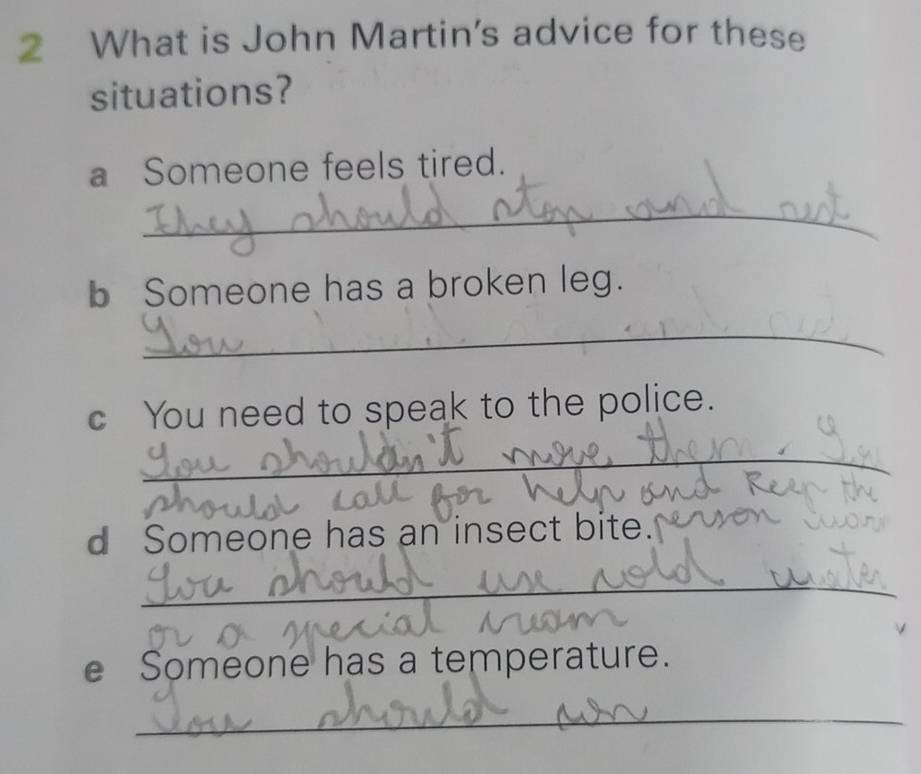 2 What is John Martin's advice for these
situations?
a Someone feels tired.
They should stop and rest
b Someone has a broken leg.
You
c You need to speak to the police.
You shouldn't move them. You
should call for help and keep the
d Someone has an insect bite. person
You should use cold water
or a special cream
e Someone has a temperature.
You should